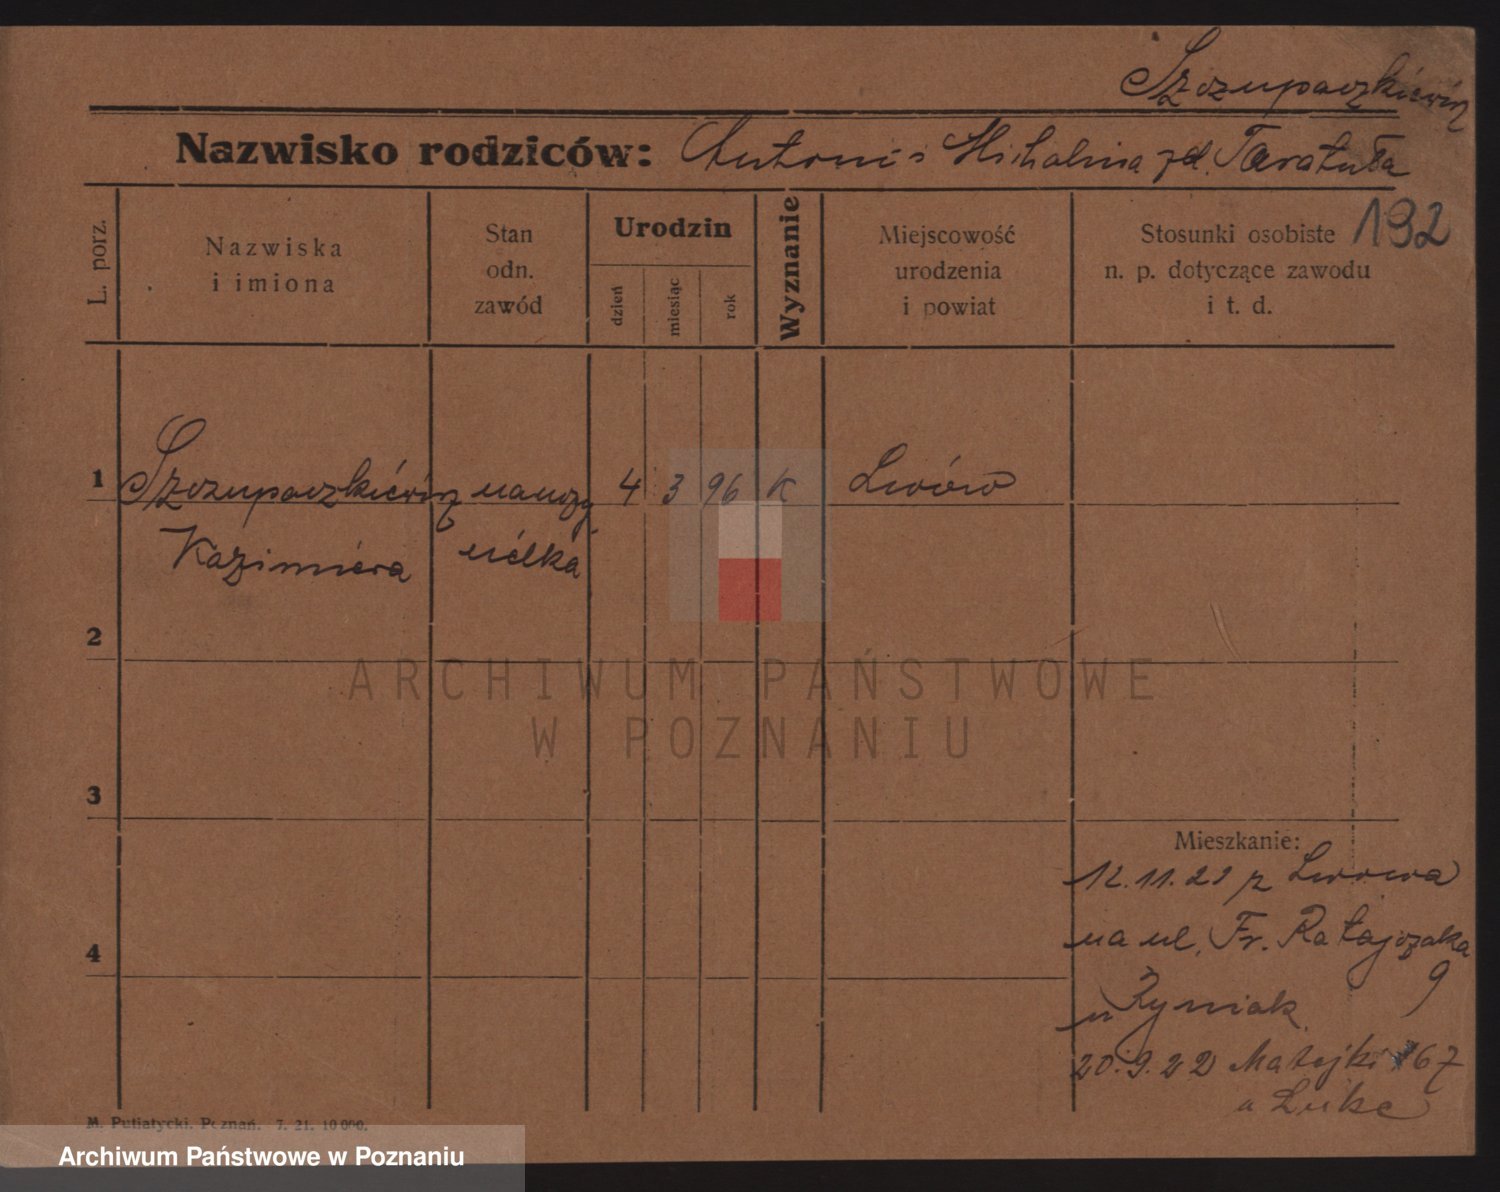 Szczupaczkiewicz
Nazwisko rodziców: Antoni i Michalina zd. Taratuła
192
L. porz.
Nazwiska
i imiona
Stan
odn.
zawód
Urodzin
dzień
miesiąc
rok
Wyznanie
Miejscowość
urodzenia
i powiat
Stosunki osobiste
n. p. dotyczące zawodu
i t. d.
1 Szczupaczkiewicz nauczy 4 3 96 K Lwów
Kazimiera cielka
2
ARCHIWUM PAŃSTWOWE
W POZNANIU
3
Mieszkanie:
12.11.21 z Lwowa
4 na ul. Fr. Ratajczaka
9
u
20.9.22 Matejki 67
a
M. Putiatycki, Poznań. 7. 21. 10000.
Archiwum Państwowe w Poznaniu